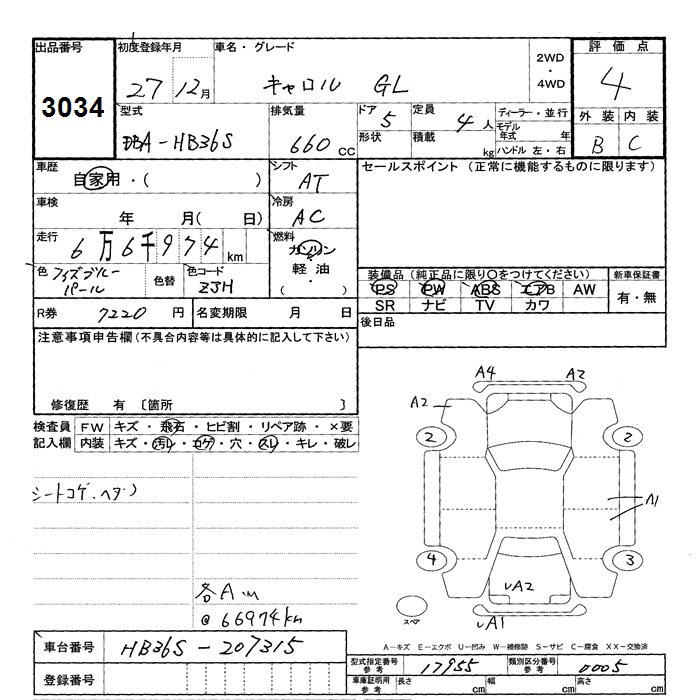 出品番号
3034
初度登録年月
27 12月
車名・グレード
キャロル GL
2WD
・
4WD
評価点
4
外装 内装
B C
型式
DBA-HB36S
排気量
660 cc
ドア
5
定員
4 人
形状
積載
kg
ディーラー・並行
モデル年式 年
ハンドル 左・右
車歴
自家用・( )
シフト
AT
セールスポイント (正常に機能するものに限ります)
車検
年 月( 日)
冷房
AC
走行
6万6千974 km
燃料
ガソリン
軽油
・
( )
色
パール
色替
色コード
ZJH
装備品 (純正品に限り○をつけてください)
PS PW ABS エアB AW
SR ナビ TV カワ
新車保証書
有・無
R券 7220 円
名変期限 月 日
後日品
注意事項申告欄 (不具合内容等は具体的に記入して下さい)
修復歴 有 〔箇所 〕
検査員
記入欄
FW キズ・飛石・ヒビ割・リペア跡・×要
内装 キズ・汚レ・コゲ・穴・スレ・キレ・破レ
シートコゲ、ヘタリ
各A
@ 66974km
A4 A2
A2
2 2
A1
4 3
A2
スペア
A1
A-キズ E-エクボ U-凹み W-補修跡 S-サビ C-腐食 XX-交換済
車台番号 HB36S-207315
登録番号
型式指定番号
参考
17955
類別区分番号
参考
0005
車庫証明用
参考
長さ cm
幅 cm
高さ cm